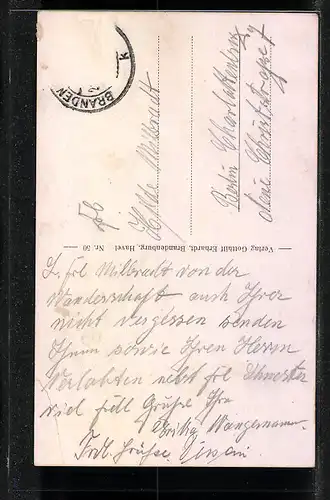 BRANDEN
Frl
Hilde Milbradt
Berlin Charlottenbrg
Neue Christstraße 7
Verlag Gotthilf Erhardt, Brandenburg, Havel Nr. 50
L. Frl Milbradt von der
Wanderschaft auch Ihrer
nicht vergessen senden
Ihnen sowie Ihren Herrn
Verlobten nebst Frl Schwester
viel Grüße Ihr
Frdl. Grüße